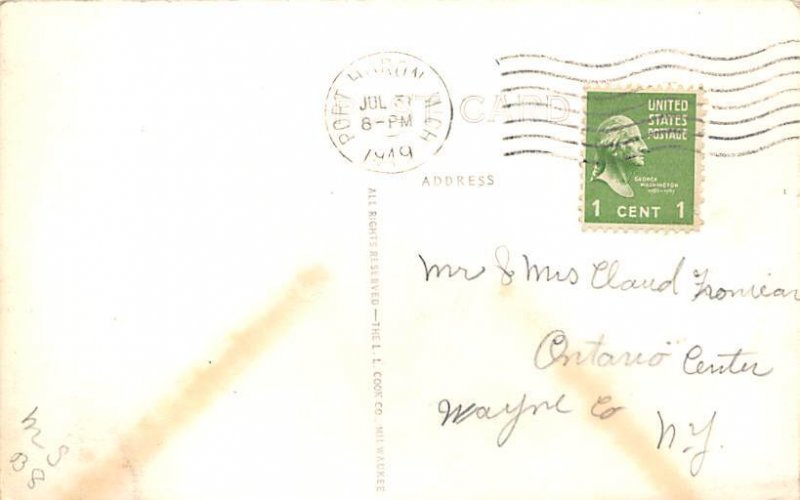 PORT HURON MICH
JUL 31
8-PM
1949
POST CARD
UNITED
STATES
POSTAGE
GEORGE
WASHINGTON
1 CENT 1
ADDRESS
ALL RIGHTS RESERVED—THE L. L. COOK CO. MILWAUKEE
Mr & Mrs Claud
Ontario Center
Wayne Co N.Y.